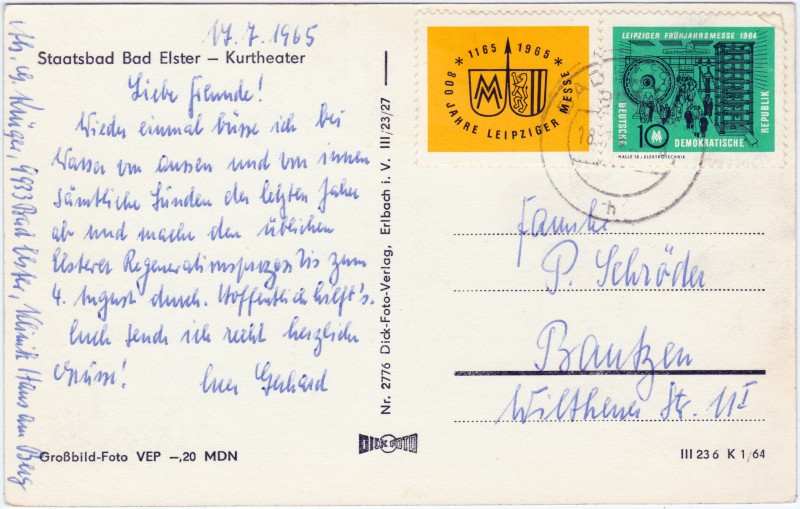 17. 7. 1965
Staatsbad Bad Elster – Kurtheater
Liebe Freunde!
Wieder einmal büsse ich bei
Wasser von aussen und von innen
sämtliche Sünden der letzten Jahre
ab und mache den üblichen
Elsterer Regenerationsprozess bis zum
4. August durch. Hoffentlich hilft's.
Euch sende ich recht herzliche
Grüsse! Euer Gerhard
Großbild-Foto VEP –,20 MDN
G. Krüger, 9933 Bad Elster, Klinik Haus am Berg
Nr. 2776 Dick-Foto-Verlag, Erlbach i. V. III/23/27
DICK FOTO
1165 1965
MM
800 JAHRE LEIPZIGER MESSE
LEIPZIGER FRÜHJAHRSMESSE 1964
DEUTSCHE
10
DEMOKRATISCHE
REPUBLIK
HALLE 18 · ELEKTROTECHNIK
Familie
P. Schröder
Bautzen
Wilthener Str. 11 I
III 23 6 K 1/64